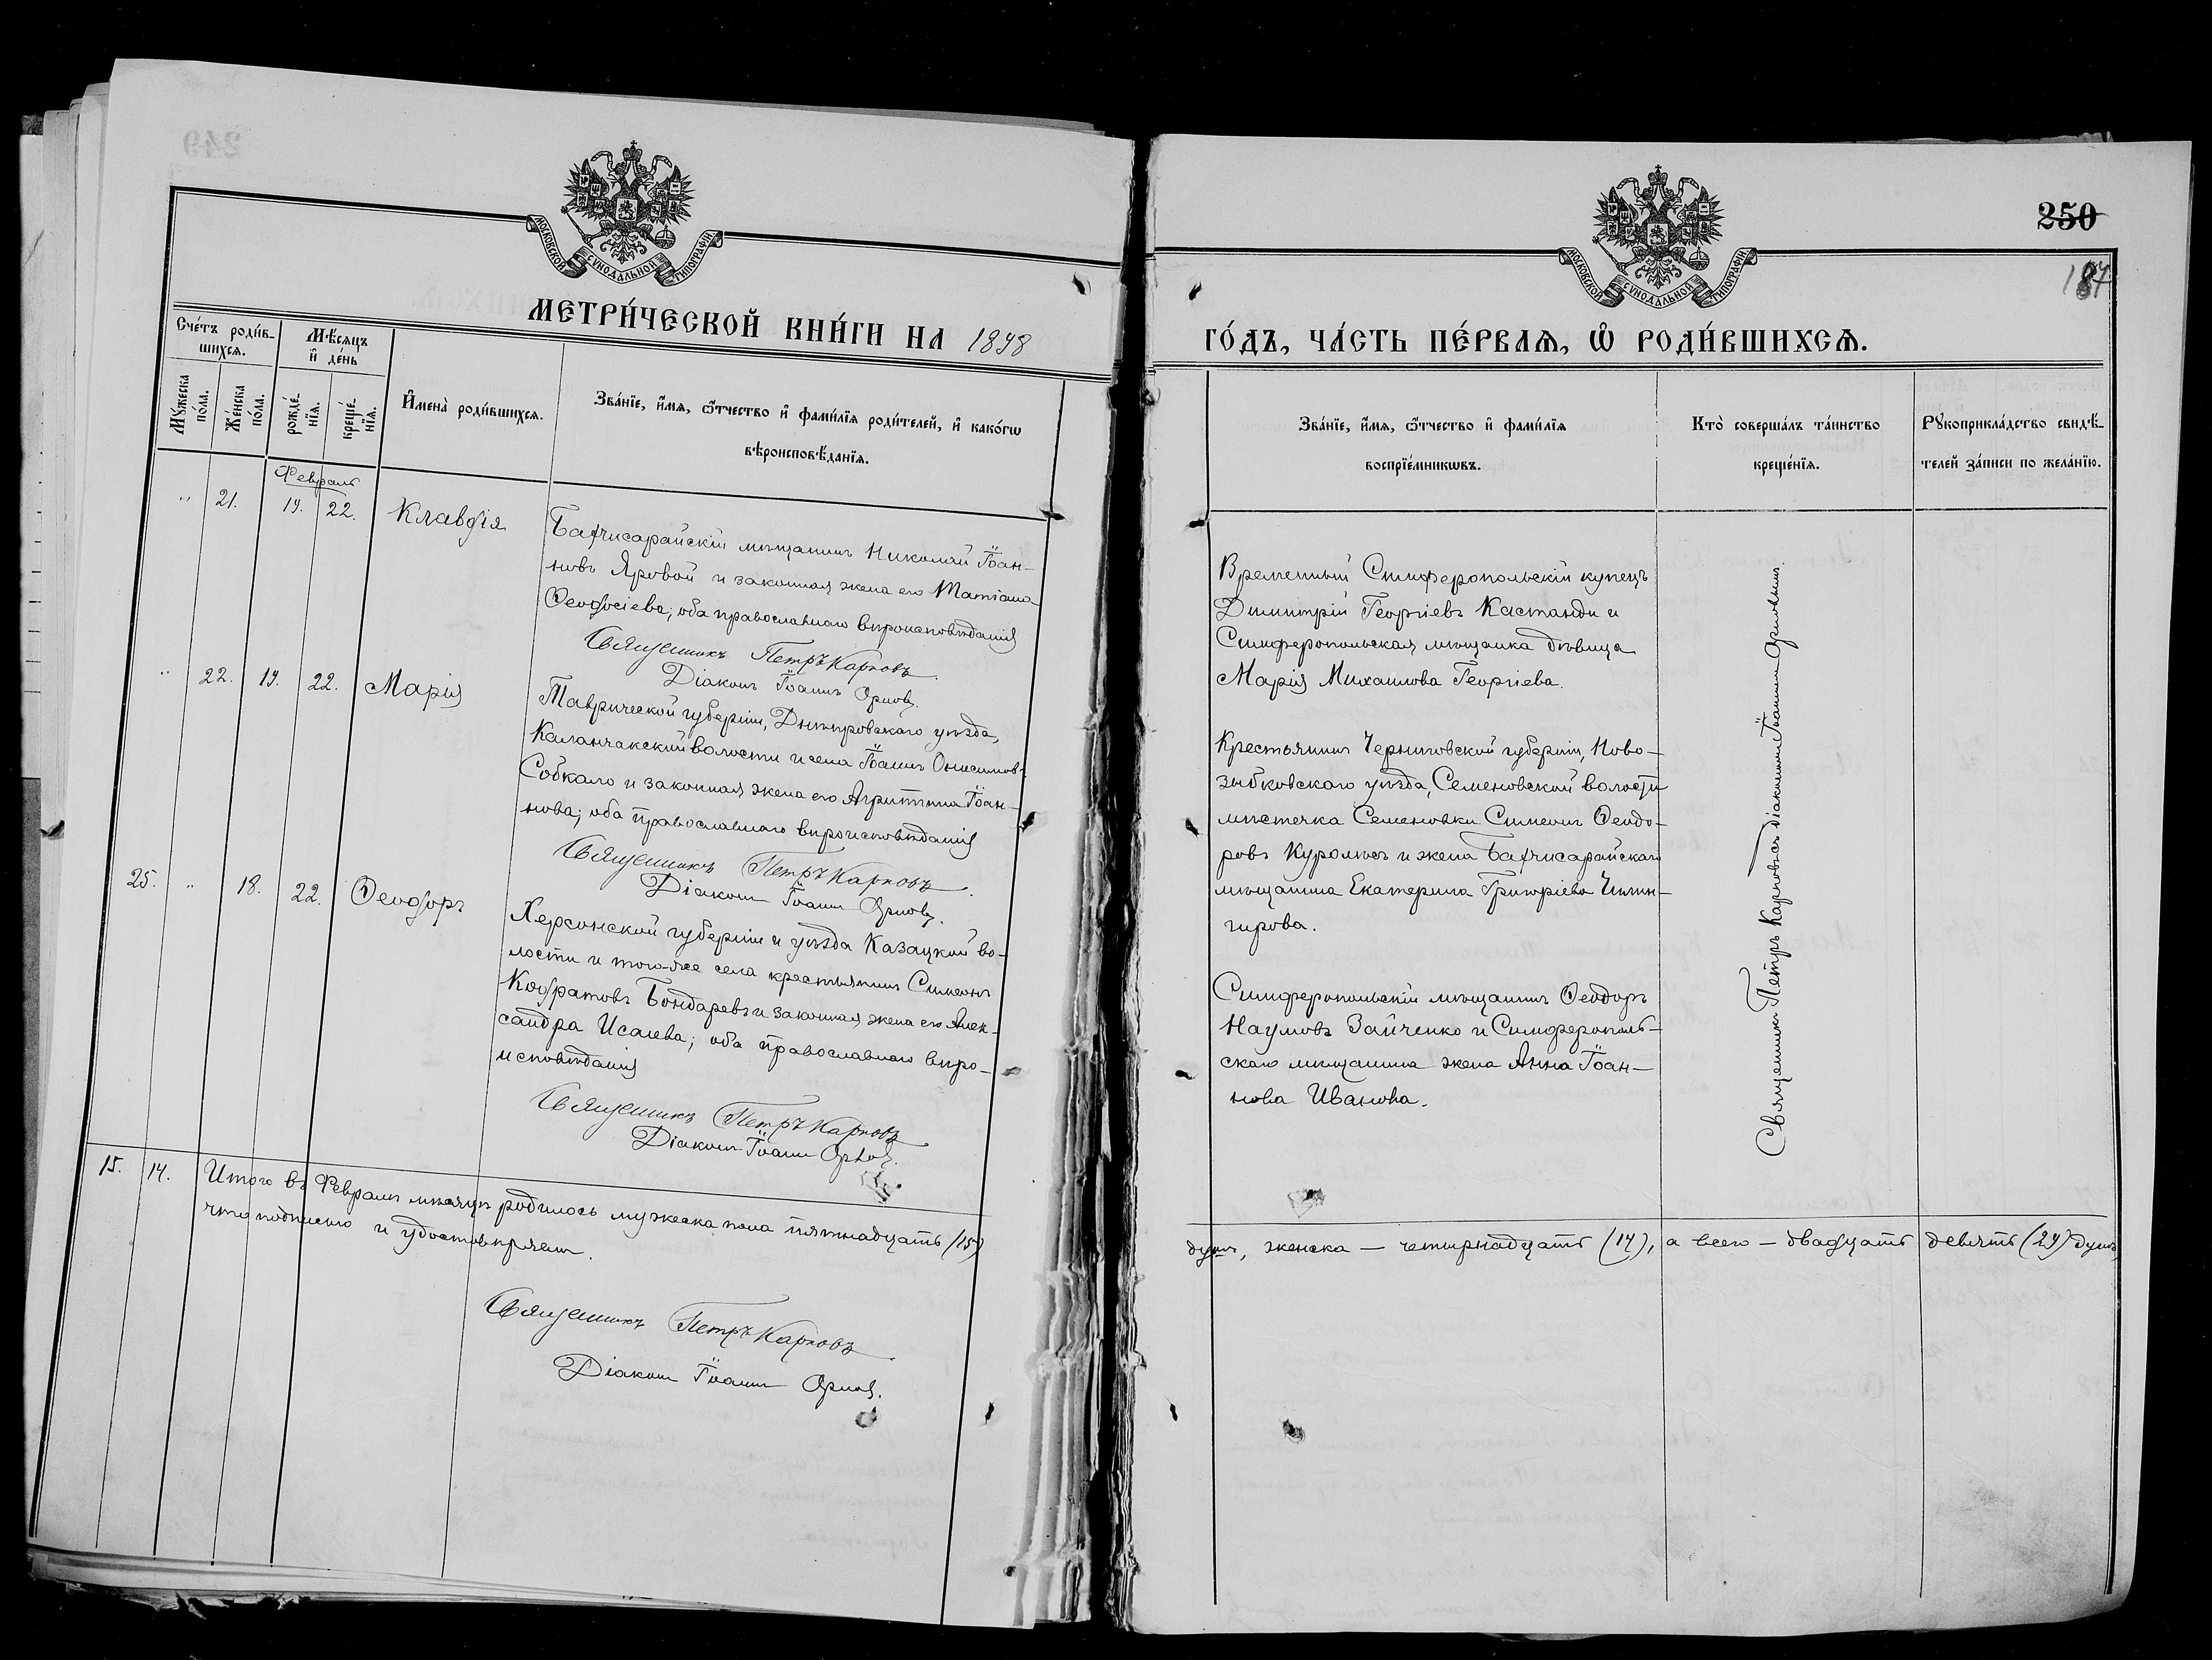 МОСКОВСКОЙ СѴНОДАЛЬНОЙ ТИПОГРАФІИ
МЕТРИ́ЧЕСКОЙ КНИ́ГИ НА 1898
Сче́тъ роди́в-
шихсѧ.
Мѣ́сѧцъ
и҆ де́нь
Мꙋ́жеска
по́ла.
Же́нска
по́ла.
рожде́-
нїѧ.
креще́-
нїѧ.
И҆мена̀ роди́вшихсѧ.
Зва́нїе, и҆́мѧ, ѻ҆́тчество и҆ фами́лїѧ роди́телей, и҆ како́гѡ
вѣроисповѣ́данїѧ.
Февраль
" 21. 19. 22. Клавдія
Бахчисарайскій мѣщанинъ Николай Іоан-
новъ Яровой и законная жена его Татіана
Ѳеодосіева; оба православнаго вѣроисповѣданія
Священникъ Петръ Карповъ.
Діаконъ Іоаннъ Орловъ.
" 22. 19. 22. Марія
Таврической губерніи, Днѣпровскаго уѣзда,
Каланчакской волости и села Іоаннъ Онисимовъ
Собкало и законная жена его Агриппина Іоан-
нова; оба православнаго вѣроисповѣданія
Священникъ Петръ Карповъ.
Діаконъ Іоаннъ Орловъ.
25. " 18. 22. Ѳеодоръ
Херсонской губерніи и уѣзда Казацкой во-
лости и того-же села крестьянинъ Симеонъ
Кодратовъ Бондаревъ и законная жена его Алек-
сандра Исаева; оба православнаго вѣро-
исповѣданія
Священникъ Петръ Карповъ
Діаконъ Іоаннъ Орловъ.
15. 14. Итого въ Февралѣ мѣсяцѣ родилось мужеска пола пятнадцать (15)
что подписью и удостовѣряемъ.
Священникъ Петръ Карповъ.
Діаконъ Іоаннъ Орловъ.
250
187
МОСКОВСКОЙ СѴНОДАЛЬНОЙ ТИПОГРАФІИ
ГО́ДЪ, ЧА́СТЬ ПЕ́РВАѦ, Ѡ҆ РОДИ́ВШИХСѦ.
Зва́нїе, и҆́мѧ, ѻ҆́тчество и҆ фами́лїѧ
воспрїе́мникѡвъ.
Кто̀ соверша́лъ та́инство
креще́нїѧ.
Рꙋкоприкла́дство свидѣ́-
телей за́писи по жела́нїю.
Временный Симферопольскій купецъ
Димитрій Георгіевъ Кастанди и
Симферопольская мѣщанка дѣвица
Марія Михаилова Георгіева.
Крестьянинъ Черниговской губерніи, Ново-
зыбковскаго уѣзда, Семеновской волости
мѣстечка Семеновки Симеонъ Ѳеодо-
ровъ Куролѣсъ и жена Бахчисарайскаго
мѣщанина Екатерина Григоріева Чилин-
гирова.
Симферопольскій мѣщанинъ Ѳеодоръ
Наумовъ Зайченко и Симферополь-
скаго мѣщанина жена Анна Іоан-
нова Иванова.
Священникъ Петръ Карповъ съ діакономъ Іоанномъ Орловымъ.
душъ, женска — четырнадцать (14), а всего — двадцать девять (29) душъ,